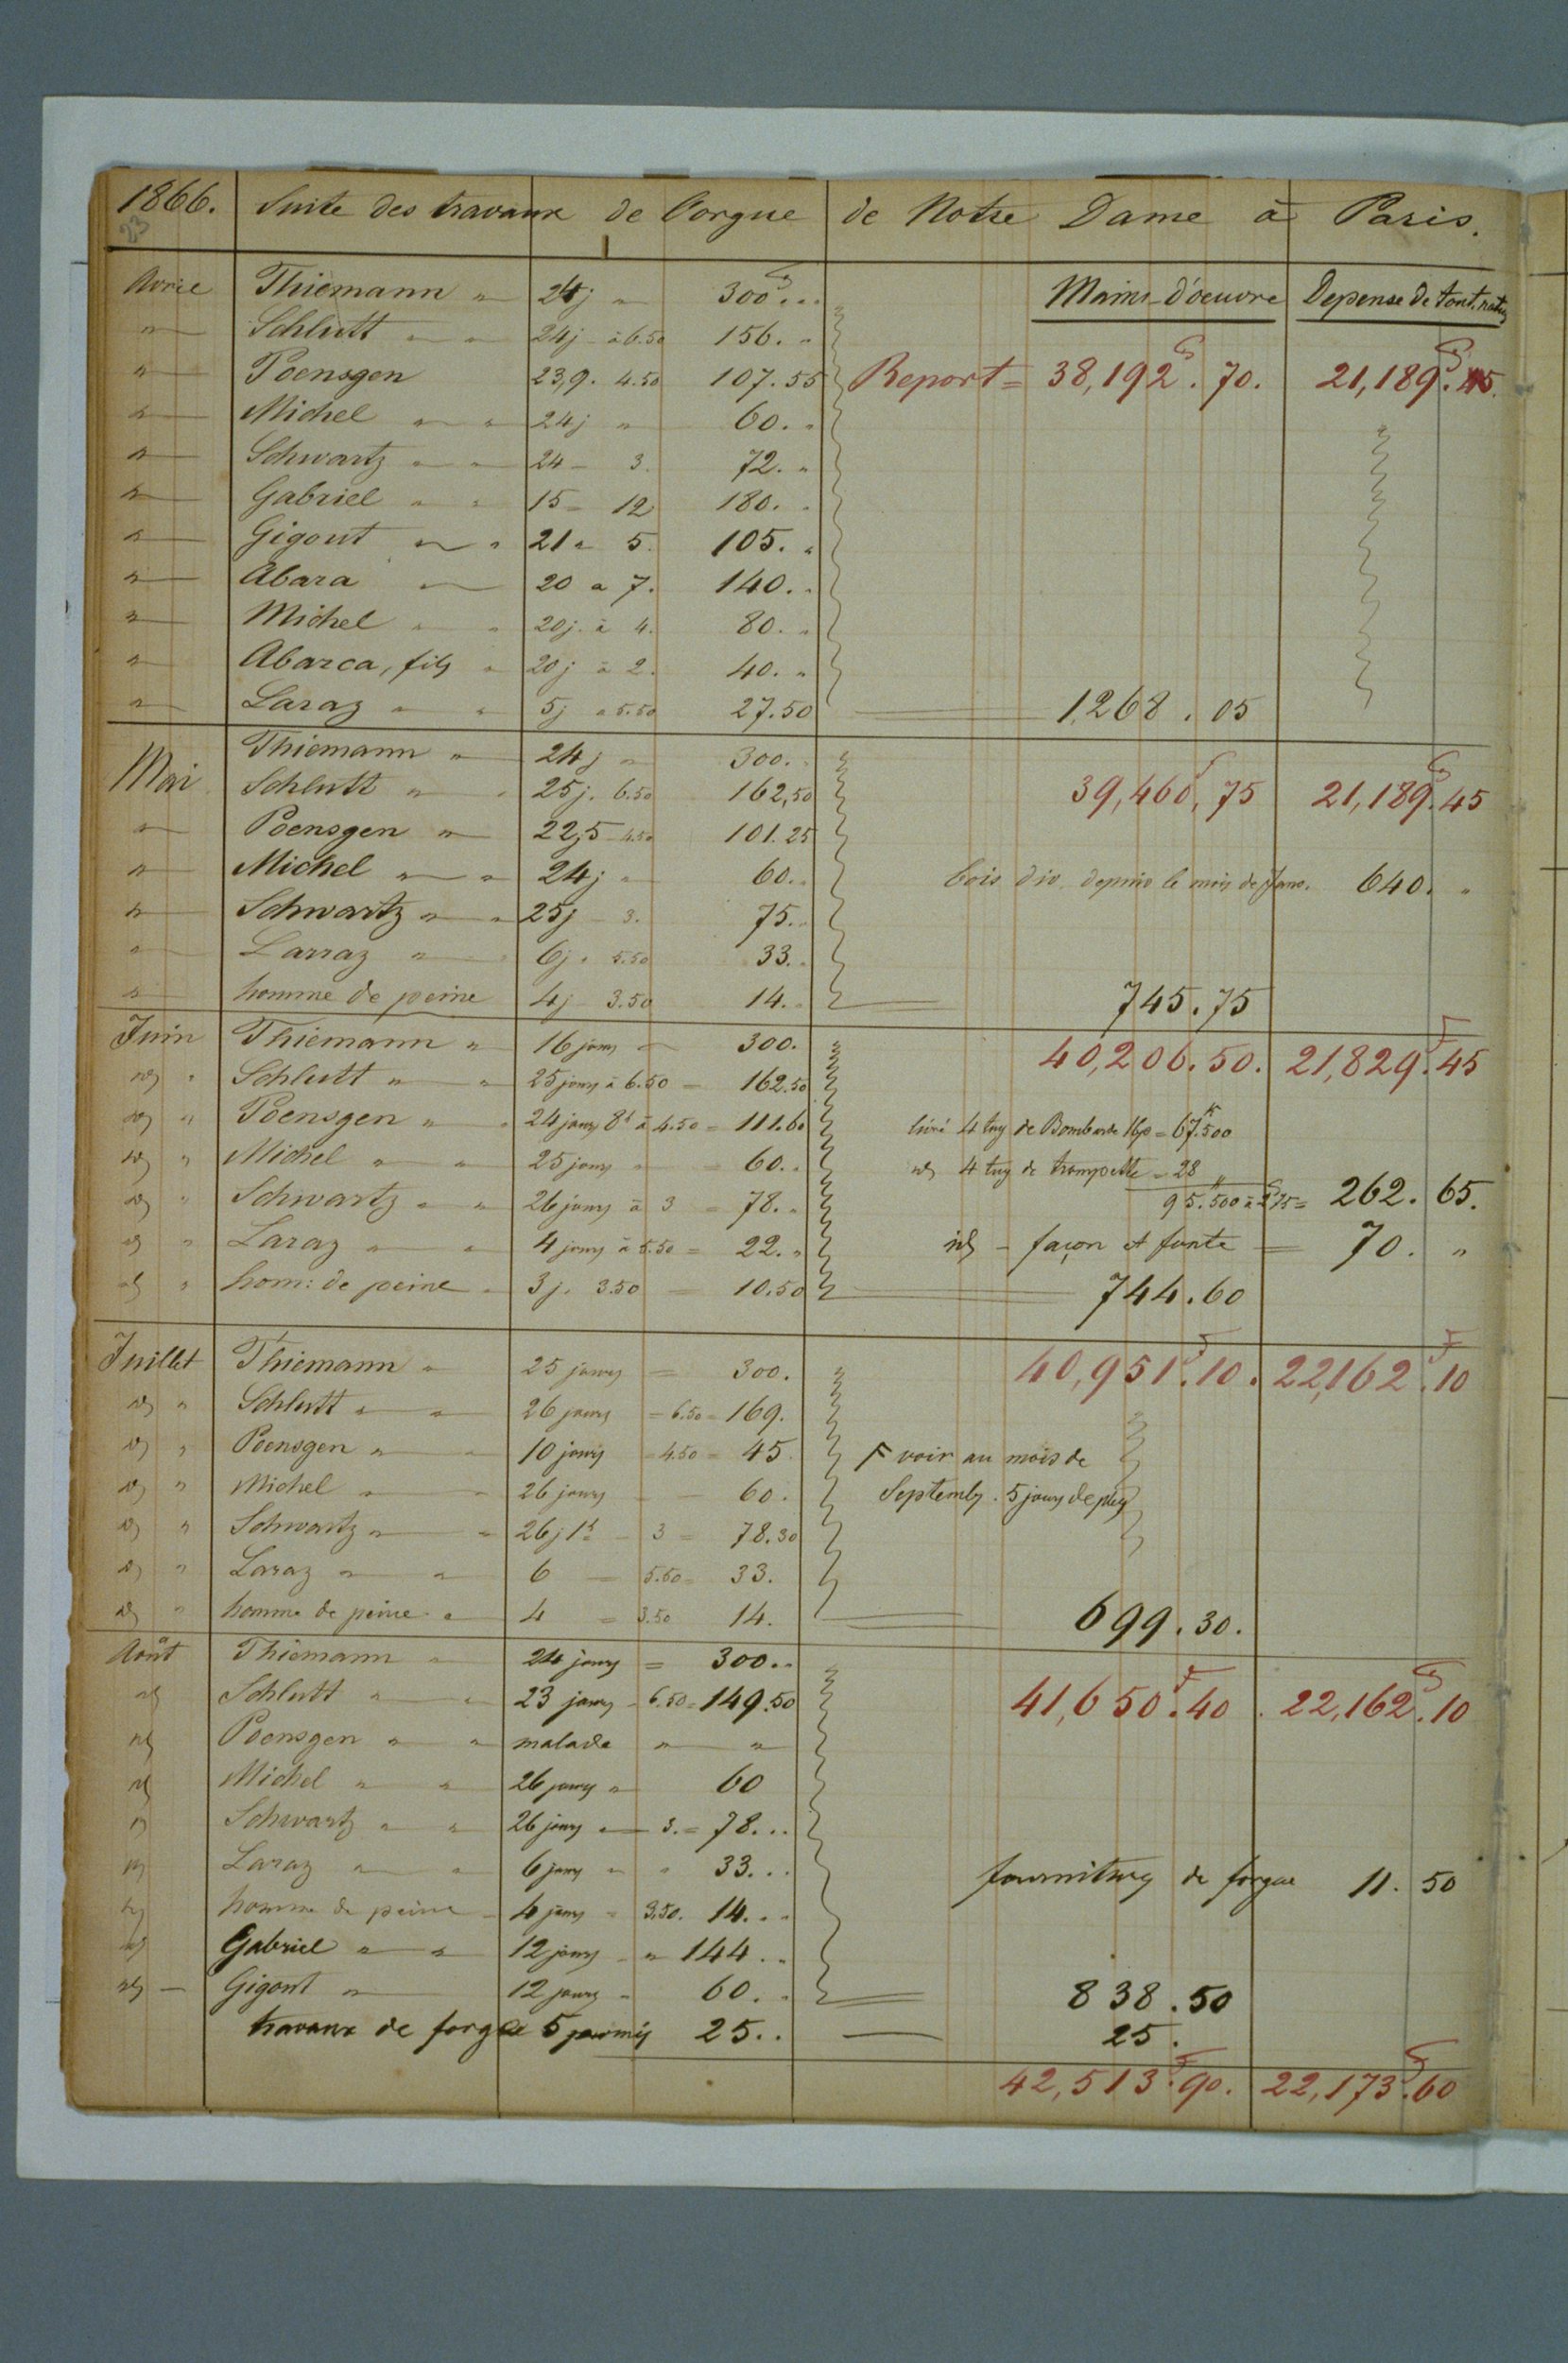 1866. Suite des travaux de l'orgue de Notre Dame à Paris.
23
Avril Thiemann " 24j " 300f..
Mains-d'oeuvre Depense de tout. natur
" Schlutt " " 24j à 6.50 156. "
" Poensgen 23,9. 4.50 107.55 Report = 38,192f.70. 21,189f.45.
" Michel " " 24j " 60. "
" Schwartz " " 24 - 3. 72. "
" Gabriel " " 15 - 12 180. "
" Gigout " " 21 " 5. 105. "
" Abara " 20 a 7. 140. "
" Michel " " 20j. à 4. 80. "
" Abarca, fils " 20j à 2. 40. "
" Laraz " " 5j à 5.50 27.50 1,268.05
Thiemann " 24j " 300.
Mai Schlutt " " 25j. 6.50 162,50 39,460,75 21,189f.45
" Poensgen " 22,5 - 4.50 101.25
" Michel " " 24j " 60. " bois div. depuis le mois de Janv. 640. "
" Schwartz " " 25j - 3. 75. "
" Larraz " " 6j. 5.50 33. "
" homme de peine 4j - 3.50 14. " 745.75
Juin Thiemann " 16 jours 300. 40,206.50. 21,829f.45
id " Schlutt " " 25 jours à 6.50 = 162.50
id " Poensgen " " 24 jours 8h à 4.50 = 111.60 livré 4 tuy de Bombarde 16p = 67k.500
id " Michel " " 25 jours " = 60. " id 4 tuy de trompette = 28 "
id " Schwartz " " 26 jours à 3 = 78. " 95k.500 à 2f75 = 262.65.
id " Laraz " " 4 jours à 5.50 = 22. " id - façon et fonte = 70. "
id " hom: de peine " 3j. 3.50 = 10.50 744.60
Juillet Thiemann " 25 jours = 300. 40,951f.10. 22,162f.10
id " Schlutt " " 26 jours = 6.50 = 169.
id " Poensgen " " 10 jours = 4.50 = 45. F voir au mois de
id " Michel " " 26 jours - - 60. Septembs. 5 jours de plus
id " Schwartz " " 26j 1h - 3 = 78.30
id " Laraz " " 6 - 5.50 = 33.
id " homme de peine " 4 = 3.50 14. 699.30.
Août Thiemann " 24 jours = 300. "
id Schlutt " " 23 jours - 6.50 = 149.50 41,650f.40. 22,162f.10
id Poensgen " " malade " "
id Michel " " 26 jours " 60
id Schwartz " " 26 jours " 3. = 78. "
id Laraz " " 6 jours " " 33. " fournitures de forgue 11.50
id homme de peine - 4 jours = 3.50. 14. "
id Gabriel " " 12 jours " 144. "
id - Gigout " 12 jours " 60. " 838.50
travaux de forge 5 25. " 25.
42,513f.90. 22,173f.60